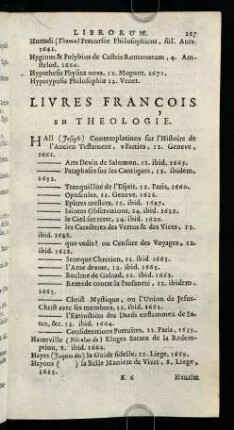 LIBRORUM. 207
Humadi (Thomæ) Precursor Philosophicus, fol. Antv.
1641.
Hyginus & Polybius de Castris Romanorum, 4. Am-
stelod. 1660.
Hypothesis Physica nova, 12. Mogunt. 1671.
Hypotyposis Philosophiæ 12. Venet.
LIVRES FRANCOIS,
EN THEOLOGIE.
HAll (Joseph) Contemplations sur l'Histoire de
l'Ancien Testament, Parties, 12. Geneve,
1661.
—— Arts Devin de Salomon. 12. ibid. 1663.
—— Paraphrases sur les Cantiques, 12. ibidem,
1632.
—— Tranquillité de l'Esprit, 12. Paris, 1660.
—— Opuscules, 12. Geneve, 1628.
—— Epitres meslées, 12. ibid. 1627.
—— Saintes Observations, 24. ibid. 1628.
—— le Ciel sur terre, 24. ibid. 1628.
—— les Caracteres des Vertus & des Vices, 12.
ibid. 1628.
—— quo vadis? ou Censure des Voyages, 12.
ibid. 1628.
—— Seneque Chrestien, 12. ibid. 1663.
—— l'Ame devote, 12. ibid. 1665.
—— Baulme de Galaad, 12. ibid. 1663.
—— Remede contre la Profaneté, 12. ibidem,
1663.
—— Christ Mystique, ou l'Union de Jesus-
Christ avec ses membres, 12. ibid. 1662.
—— l'Extinction des Dards enflammez de Sa-
tan, &c. 12. ibid. 1664.
—— Considerations Fortuites, 12. Paris, 1655.
Hauteville (Nicolas de) Eloges Sacrez de la Redem-
ption, 2. ibid. 1664.
Hayes (Jaques des) la Guide fidelle, 12. Liege, 1669.
la Belle Maniere de Vivre, 8. Liege,
1685.
K 6